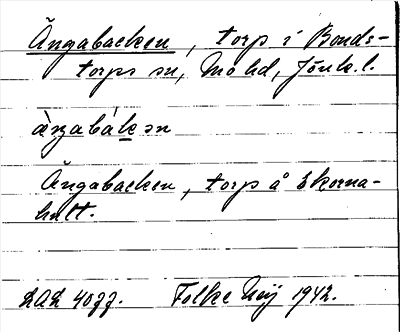 Ängabacken, torp i Bonds-
torps sn, Mo hd, Jönk.l.
àŋabákən
Ängabacken, torp å Ekorna-
hult.
LAL 4077. Folke Meij 1942.